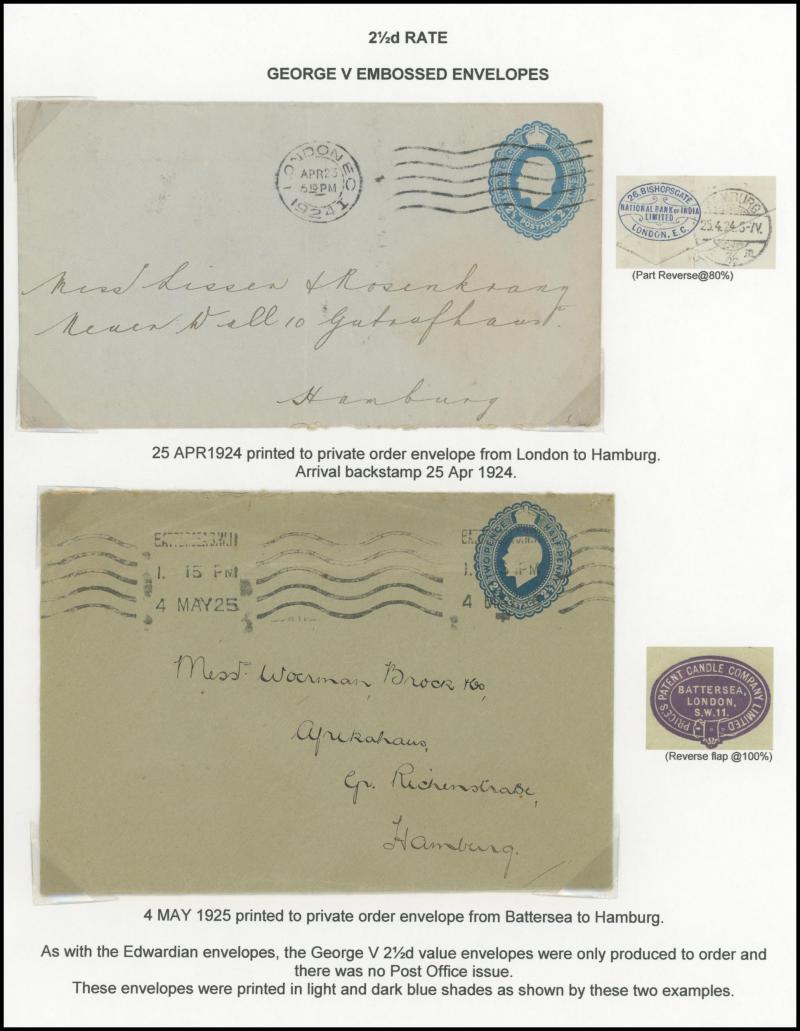 2½d RATE
GEORGE V EMBOSSED ENVELOPES
LONDON E.C
APR 25
5 PM
1924
TWO PENCE HALFPENNY
2½ POSTAGE 2½
26, BISHOPSGATE
NATIONAL BANK OF INDIA
LIMITED
LONDON, E.C.
HAMBURG
25.4.24.6-7V.
(Part Reverse@80%)
Mess Lissen & Rosenkranz
Neuer Wall 10 Gutrufhaus.
Hamburg
25 APR1924 printed to private order envelope from London to Hamburg.
Arrival backstamp 25 Apr 1924.
BATTERSEA S.W.11
1. 15 PM
4 MAY 25
TWO PENCE HALFPENNY
2½ POSTAGE 2½
Messrs Woerman, Brock & Co,
Afrikahaus,
Gr. Reichenstraße,
Hamburg.
PRICE'S PATENT CANDLE COMPANY LIMITED
BATTERSEA,
LONDON,
S.W.11.
(Reverse flap @100%)
4 MAY 1925 printed to private order envelope from Battersea to Hamburg.
As with the Edwardian envelopes, the George V 2½d value envelopes were only produced to order and
there was no Post Office issue.
These envelopes were printed in light and dark blue shades as shown by these two examples.